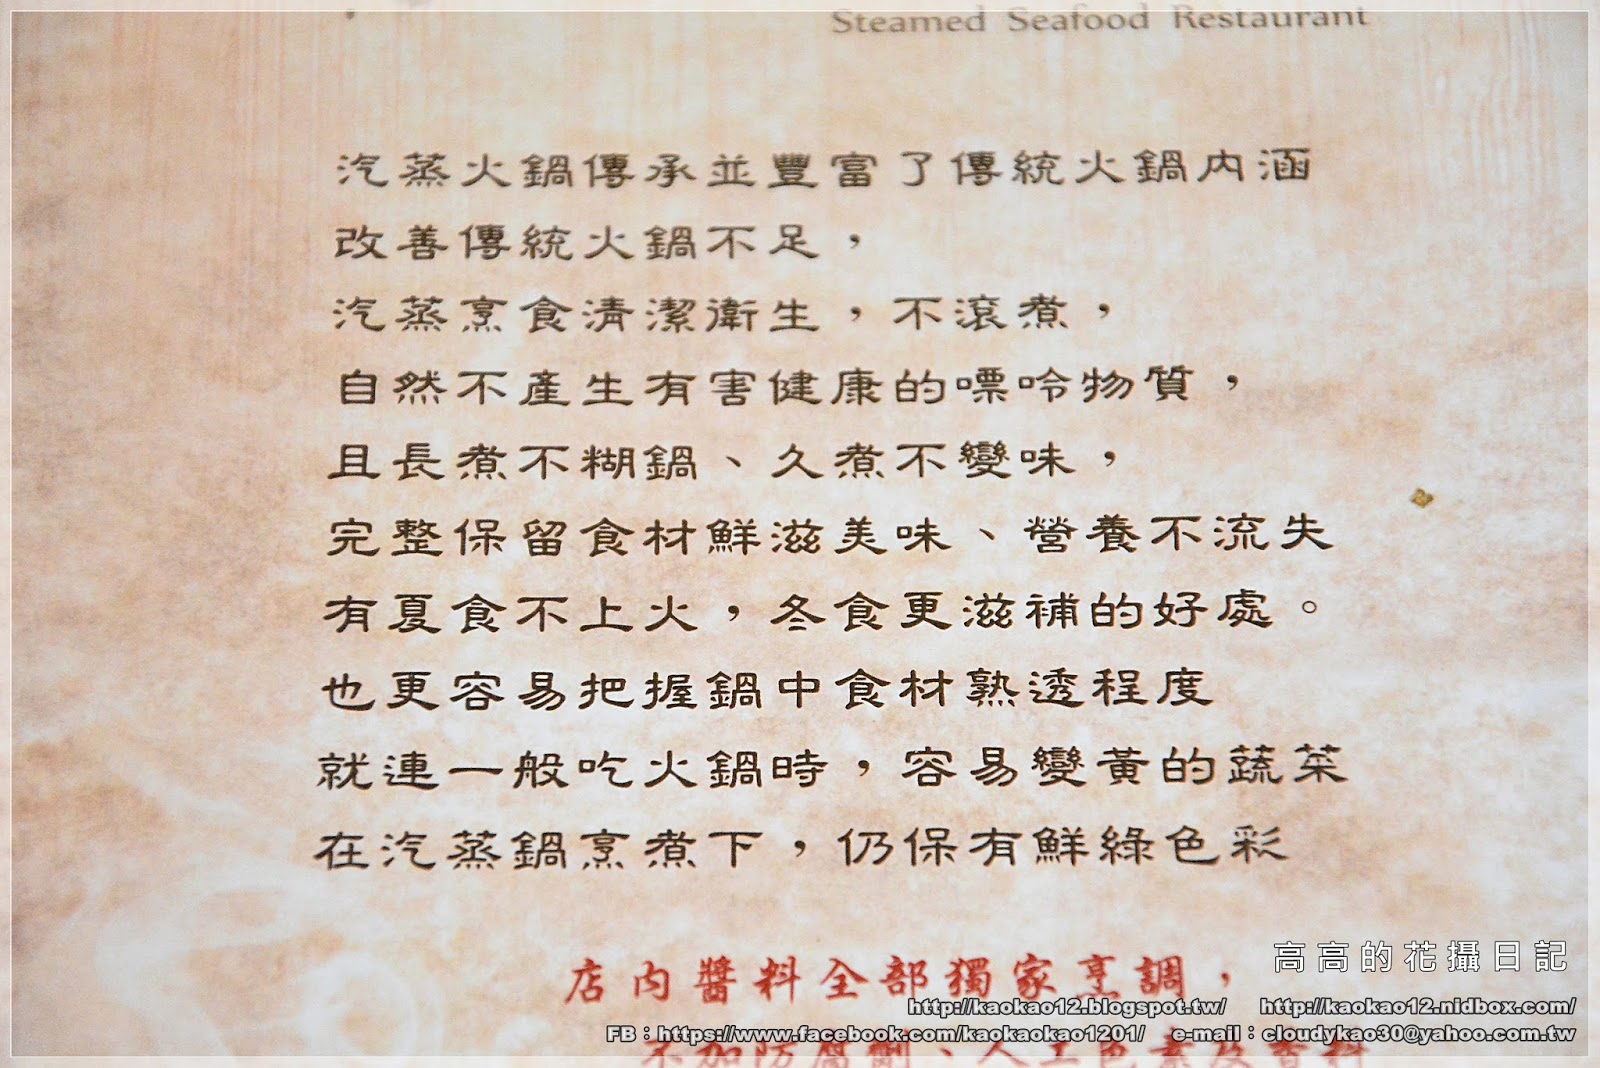 Steamed Seafood Restaurant
汽蒸火鍋傳承並豐富了傳統火鍋內涵
改善傳統火鍋不足，
汽蒸烹食清潔衛生，不滾煮，
自然不產生有害健康的嘌呤物質，
且長煮不糊鍋、久煮不變味，
完整保留食材鮮滋美味、營養不流失
有夏食不上火，冬食更滋補的好處。
也更容易把握鍋中食材熟透程度
就連一般吃火鍋時，容易變黃的蔬菜
在汽蒸鍋烹煮下，仍保有鮮綠色彩
店內醬料全部獨家烹調，
不加防腐劑、人工色素及香料
高高的花攝日記
http://kaokao12.blogspot.tw/ http://kaokao12.nidbox.com/
FB：https://www.facebook.com/kaokaokao1201/ e-mail：cloudykao30@yahoo.com.tw